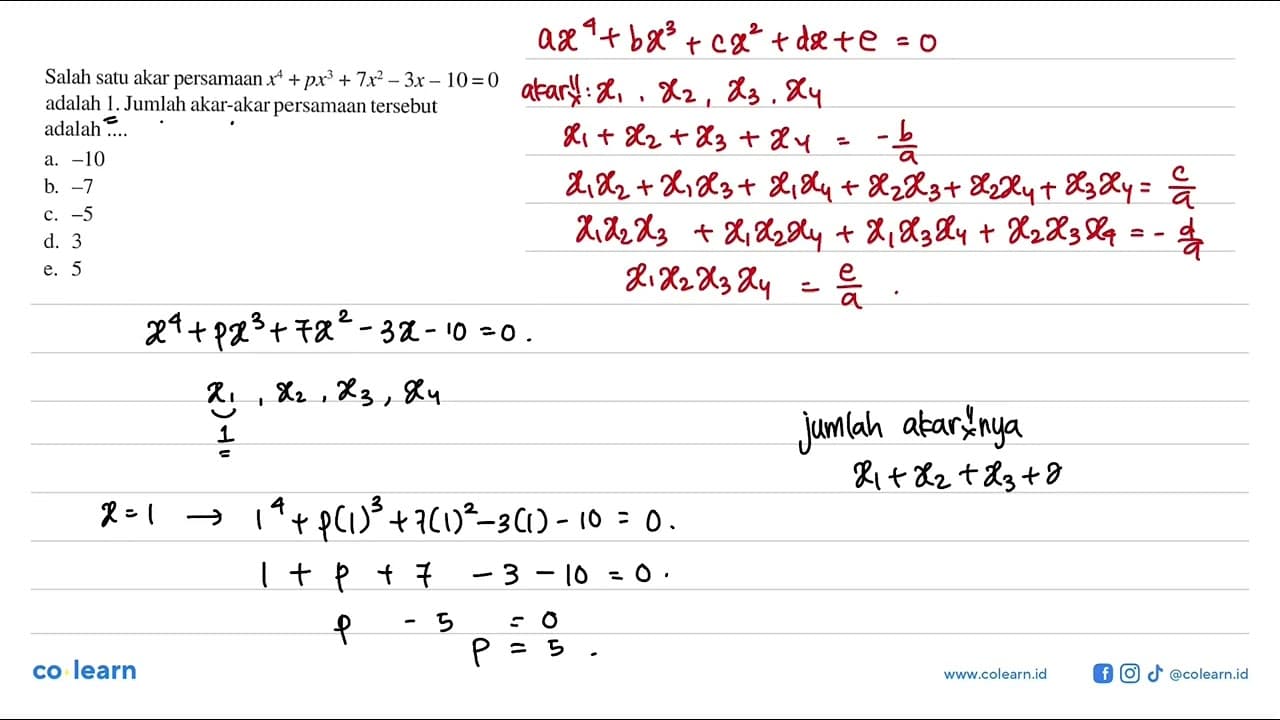 Salah satu akar persamaan x⁴ + px³ + 7x² – 3x – 10 = 0
adalah 1. Jumlah akar-akar persamaan tersebut
adalah ....
a. –10
b. –7
c. –5
d. 3
e. 5
ax⁴ + bx³ + cx² + dx + e = 0
akar": x₁, x₂, x₃, x₄
x₁ + x₂ + x₃ + x₄ = -b/a
x₁x₂ + x₁x₃ + x₁x₄ + x₂x₃ + x₂x₄ + x₃x₄ = c/a
x₁x₂x₃ + x₁x₂x₄ + x₁x₃x₄ + x₂x₃x₄ = -d/a
x₁x₂x₃x₄ = e/a .
x⁴ + px³ + 7x² - 3x - 10 = 0 .
x₁, x₂, x₃, x₄
1
=
x = 1 → 1⁴ + p(1)³ + 7(1)² - 3(1) - 10 = 0.
1 + p + 7 - 3 - 10 = 0 .
p - 5 = 0
p = 5 .
jumlah akar"nya
x₁ + x₂ + x₃ +
co learn
www.colearn.id
@colearn.id